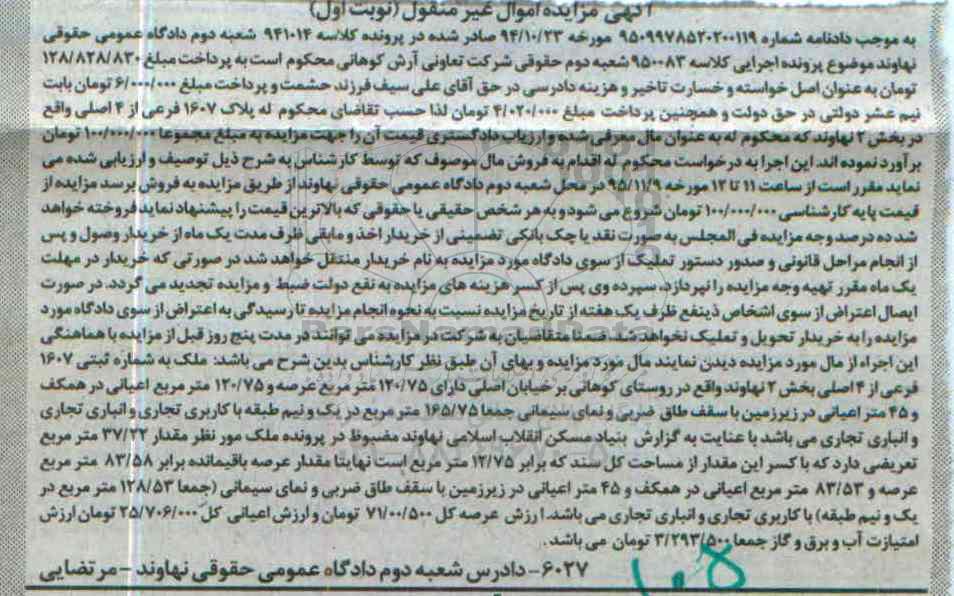 آگهی مزایده اموال غیر منقول (نوبت اول)
به موجب دادنامه شماره ۹۵۰۹۹۷۸۵۲۰۲۰۰۱۱۹ مورخه ۹۴/۱۰/۲۳ صادر شده در پرونده کلاسه ۹۴۱۰۱۴ شعبه دوم دادگاه عمومی حقوقی
نهاوند موضوع پرونده اجرایی کلاسه ۹۵۰۰۸۳ شعبه دوم حقوقی شرکت تعاونی آرش کوهانی محکوم است به پرداخت مبلغ ۱۲۸/۸۲۸/۸۳۰
تومان به عنوان اصل خواسته و خسارت تاخیر و هزینه دادرسی در حق آقای علی سیف فرزند حشمت و پرداخت مبلغ ۶/۰۰۰/۰۰۰ تومان بابت
نیم عشر دولتی در حق دولت و همچنین پرداخت مبلغ ۴/۰۲۰/۰۰۰ تومان لذا حسب تقاضای محکوم له پلاک ۱۶۰۷ فرعی از ۴ اصلی واقع
در بخش ۲ نهاوند که محکوم له به عنوان مال معرفی شده و ارزیاب دادگستری قیمت آن را جهت مزایده به مبلغ مجموعا ۱۰۰/۰۰۰/۰۰۰ تومان
برآورد نموده اند. این اجرا به درخواست محکوم له اقدام به فروش مال موصوف که توسط کارشناس به شرح ذیل توصیف و ارزیابی شده می
نماید مقرر است از ساعت ۱۱ تا ۱۲ مورخه ۹۵/۱۱/۹ در محل شعبه دوم دادگاه عمومی حقوقی نهاوند از طریق مزایده به فروش برسد مزایده از
قیمت پایه کارشناسی ۱۰۰/۰۰۰/۰۰۰ تومان شروع می شود و به هر شخص حقیقی یا حقوقی که بالاترین قیمت را پیشنهاد نماید فروخته خواهد
شد ده درصد وجه مزایده فی المجلس به صورت نقد یا چک بانکی تضمینی از خریدار اخذ و مابقی ظرف مدت یک ماه از خریدار وصول و پس
از انجام مراحل قانونی و صدور دستور تملیک از سوی دادگاه مورد مزایده به نام خریدار منتقل خواهد شد در صورتی که خریدار در مهلت
یک ماه مقرر تهیه وجه مزایده را نپردازد، سپرده وی پس از کسر هزینه های مزایده به نفع دولت ضبط و مزایده تجدید می گردد. در صورت
ایصال اعتراض از سوی اشخاص ذینفع ظرف یک هفته از تاریخ مزایده نسبت به نحوه انجام مزایده تا رسیدگی به اعتراض از سوی دادگاه مورد
مزایده را به خریدار تحویل و تملیک نخواهد شد. ضمنا متقاضیان به شرکت در مزایده می توانند در مدت پنج روز قبل از مزایده با هماهنگی
این اجراء از مال مورد مزایده دیدن نمایند مال مورد مزایده و بهای آن طبق نظر کارشناس بدین شرح می باشد: ملک به شماره ثبتی ۱۶۰۷
فرعی از ۴ اصلی بخش ۲ نهاوند واقع در روستای کوهانی بر خیابان اصلی دارای ۱۲۰/۷۵ متر مربع عرصه و ۱۲۰/۷۵ متر مربع اعیانی در همکف
و ۴۵ متر اعیانی در زیرزمین با سقف طاق ضربی و نمای سیمانی جمعا ۱۶۵/۷۵ متر مربع در یک و نیم طبقه با کاربری تجاری و انباری تجاری
و انباری تجاری می باشد با عنایت به گزارش بنیاد مسکن انقلاب اسلامی نهاوند مضبوظ در پرونده ملک مور نظر مقدار ۳۷/۲۲ متر مربع
تعریضی دارد که با کسر این مقدار از مساحت کل سند که برابر ۱۲/۷۵ متر مربع است نهایتا مقدار عرصه باقیمانده برابر ۸۳/۵۸ متر مربع
عرصه و ۸۳/۵۳ متر مربع اعیانی در همکف و ۴۵ متر اعیانی در زیرزمین با سقف طاق ضربی و نمای سیمانی (جمعا ۱۲۸/۵۳ متر مربع در
یک و نیم طبقه) با کاربری تجاری و انباری تجاری می باشد. ارزش عرصه کل ۷۱/۰۰/۵۰۰ تومان و ارزش اعیانی کل ۲۵/۷۰۶/۰۰۰ تومان ارزش
امتیازت آب و برق و گاز جمعا ۳/۲۹۳/۵۰۰ تومان می باشد.
۶۰۲۷- دادرس شعبه دوم دادگاه عمومی حقوقی نهاوند - مرتضایی